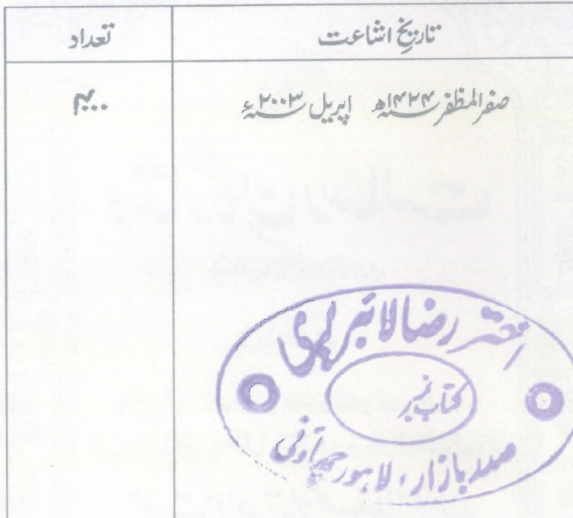 تاریخ اشاعت
تعداد
صفر المظفر ۱۴۲۴ھ اپریل ۲۰۰۳ء
اختر رضا لائبریری
کتاب نمبر
صدر بازار، لاہور چھاؤنی